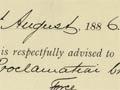 August, 1886.
is respectfully advised to
Proclamation
force